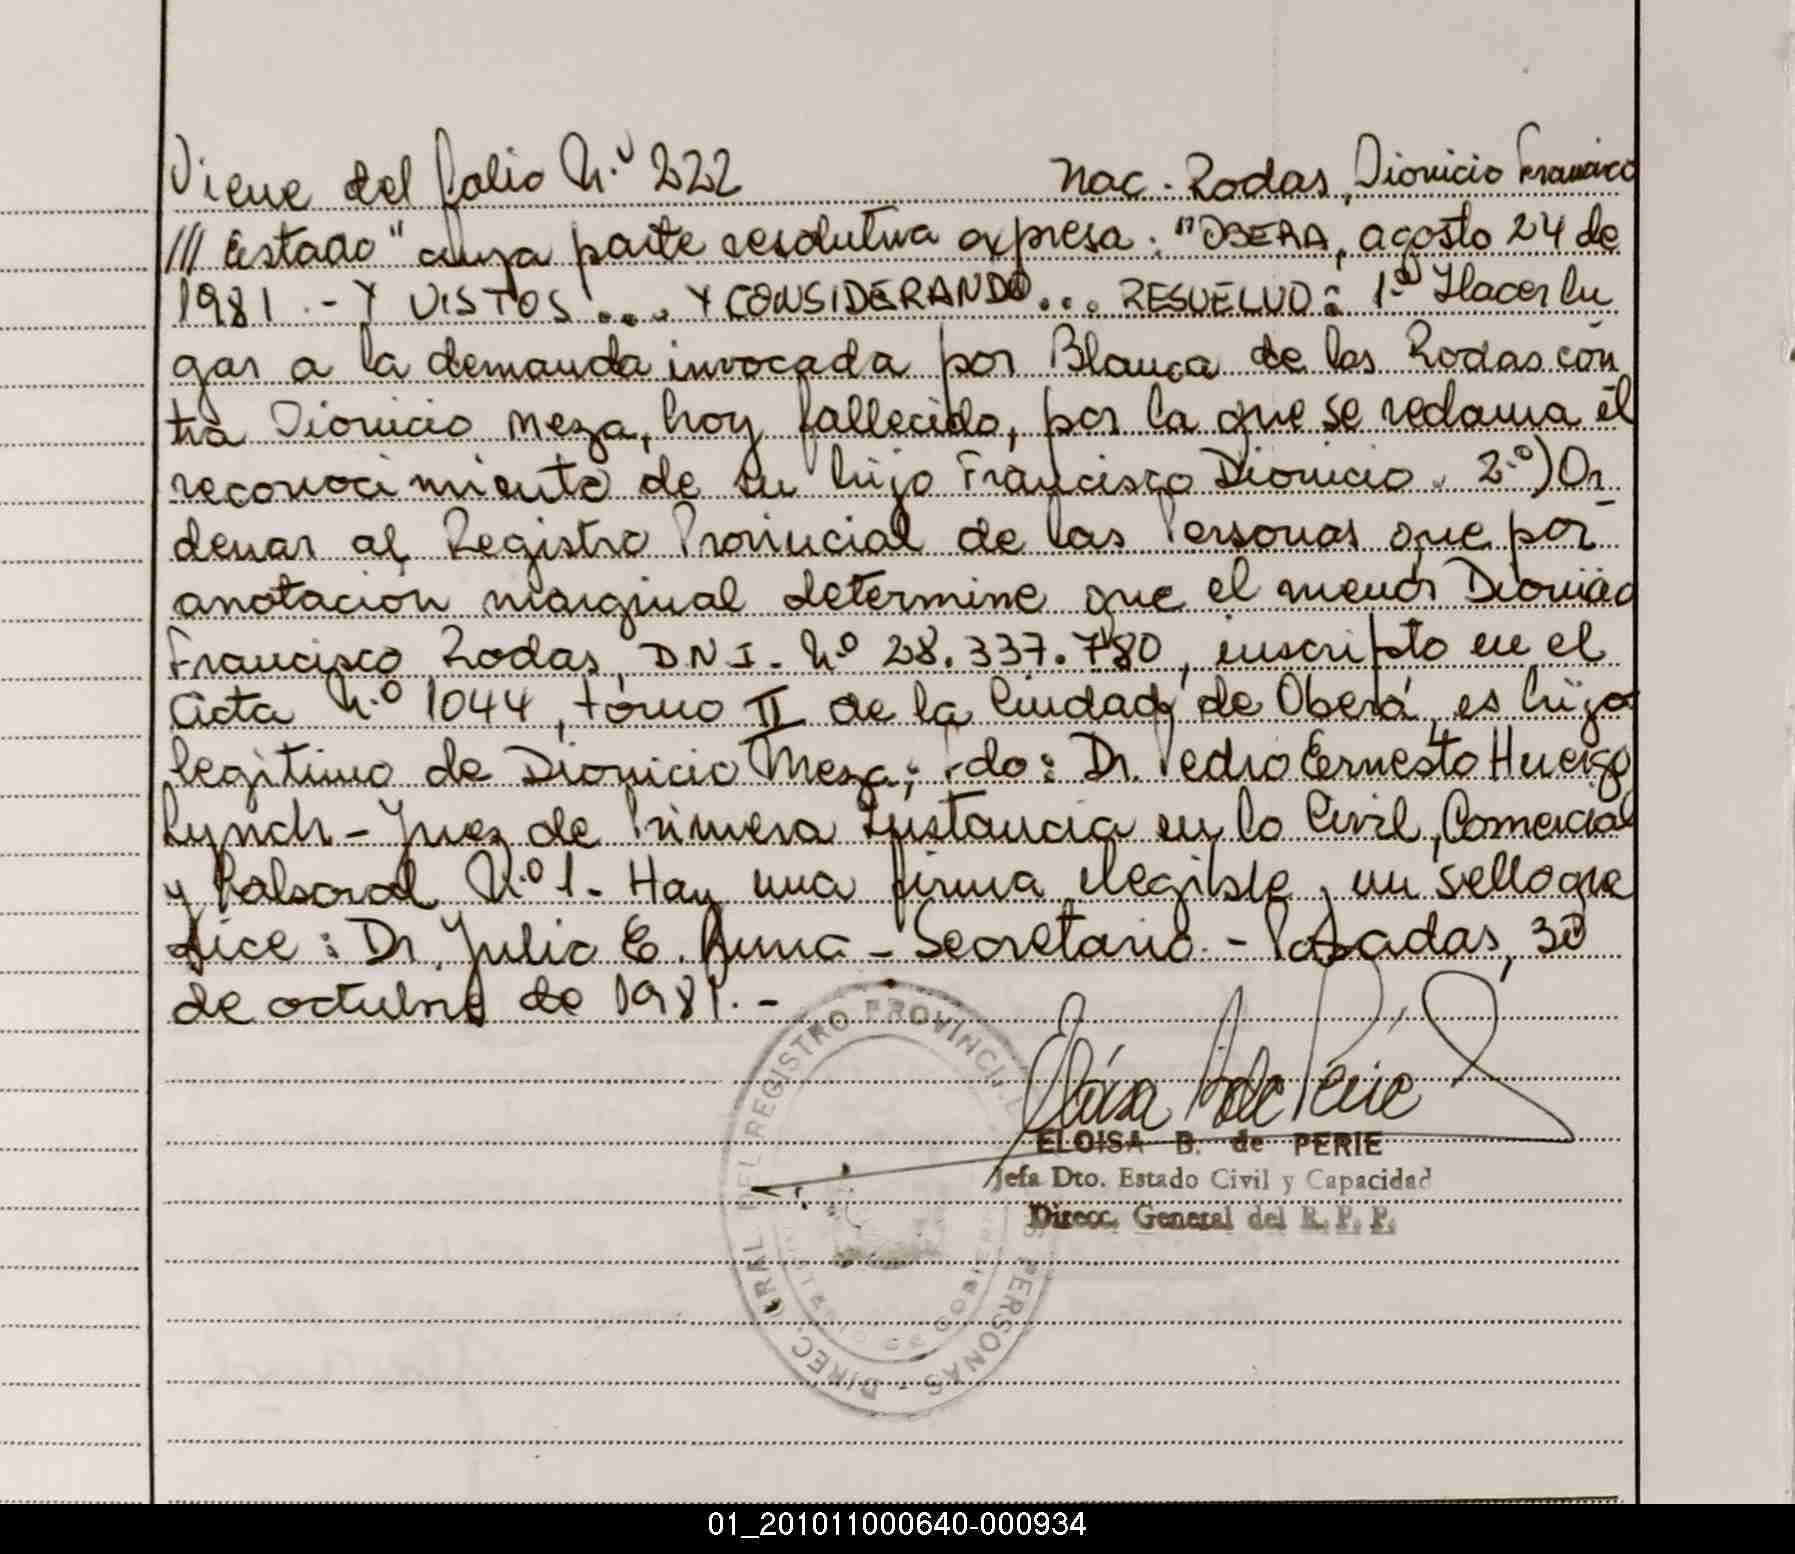 Viene del folio N.º 222 Nac. Rodas, Dionicio Francisco
/// Estado" cuya parte resolutiva expresa: "OBERA, agosto 24 de
1981.- Y VISTOS.... Y CONSIDERANDO... RESUELVO: 1.º Hacer lu
gar a la demanda invocada por Blanca de las Rodas con
tra Dionicio Meza, hoy fallecido, por la que se reclama el
reconocimiento de su hijo Francisco Dionicio. 2.º) Or
denar al Registro Provincial de las Personas que por
anotación marginal determine que el menor Dionicio
Francisco Rodas, D.N.I. Nº 28.337.780, inscripto en el
Acta N.º 1044, tomo II de la Ciudad de Oberá, es hijo
legitimo de Dionicio Meza; Fdo: Dr. Pedro Ernesto
Lynch - Juez de Primera Instancia en lo Civil, Comercial
y Laboral N.º 1 - Hay una firma ilegible, un sello que
dice: Dr. Julio E. - Secretario.- Posadas, 30
de octubre de 1981.-
DIREC. GRAL DEL REGISTRO PROVINCIAL PERSONAS
MINISTERIO DE GOBIERNO
ELOISA B. de PERIE
Jefa Dto. Estado Civil y Capacidad
Direcc. General del R. P. P.
01_201011000640-000934